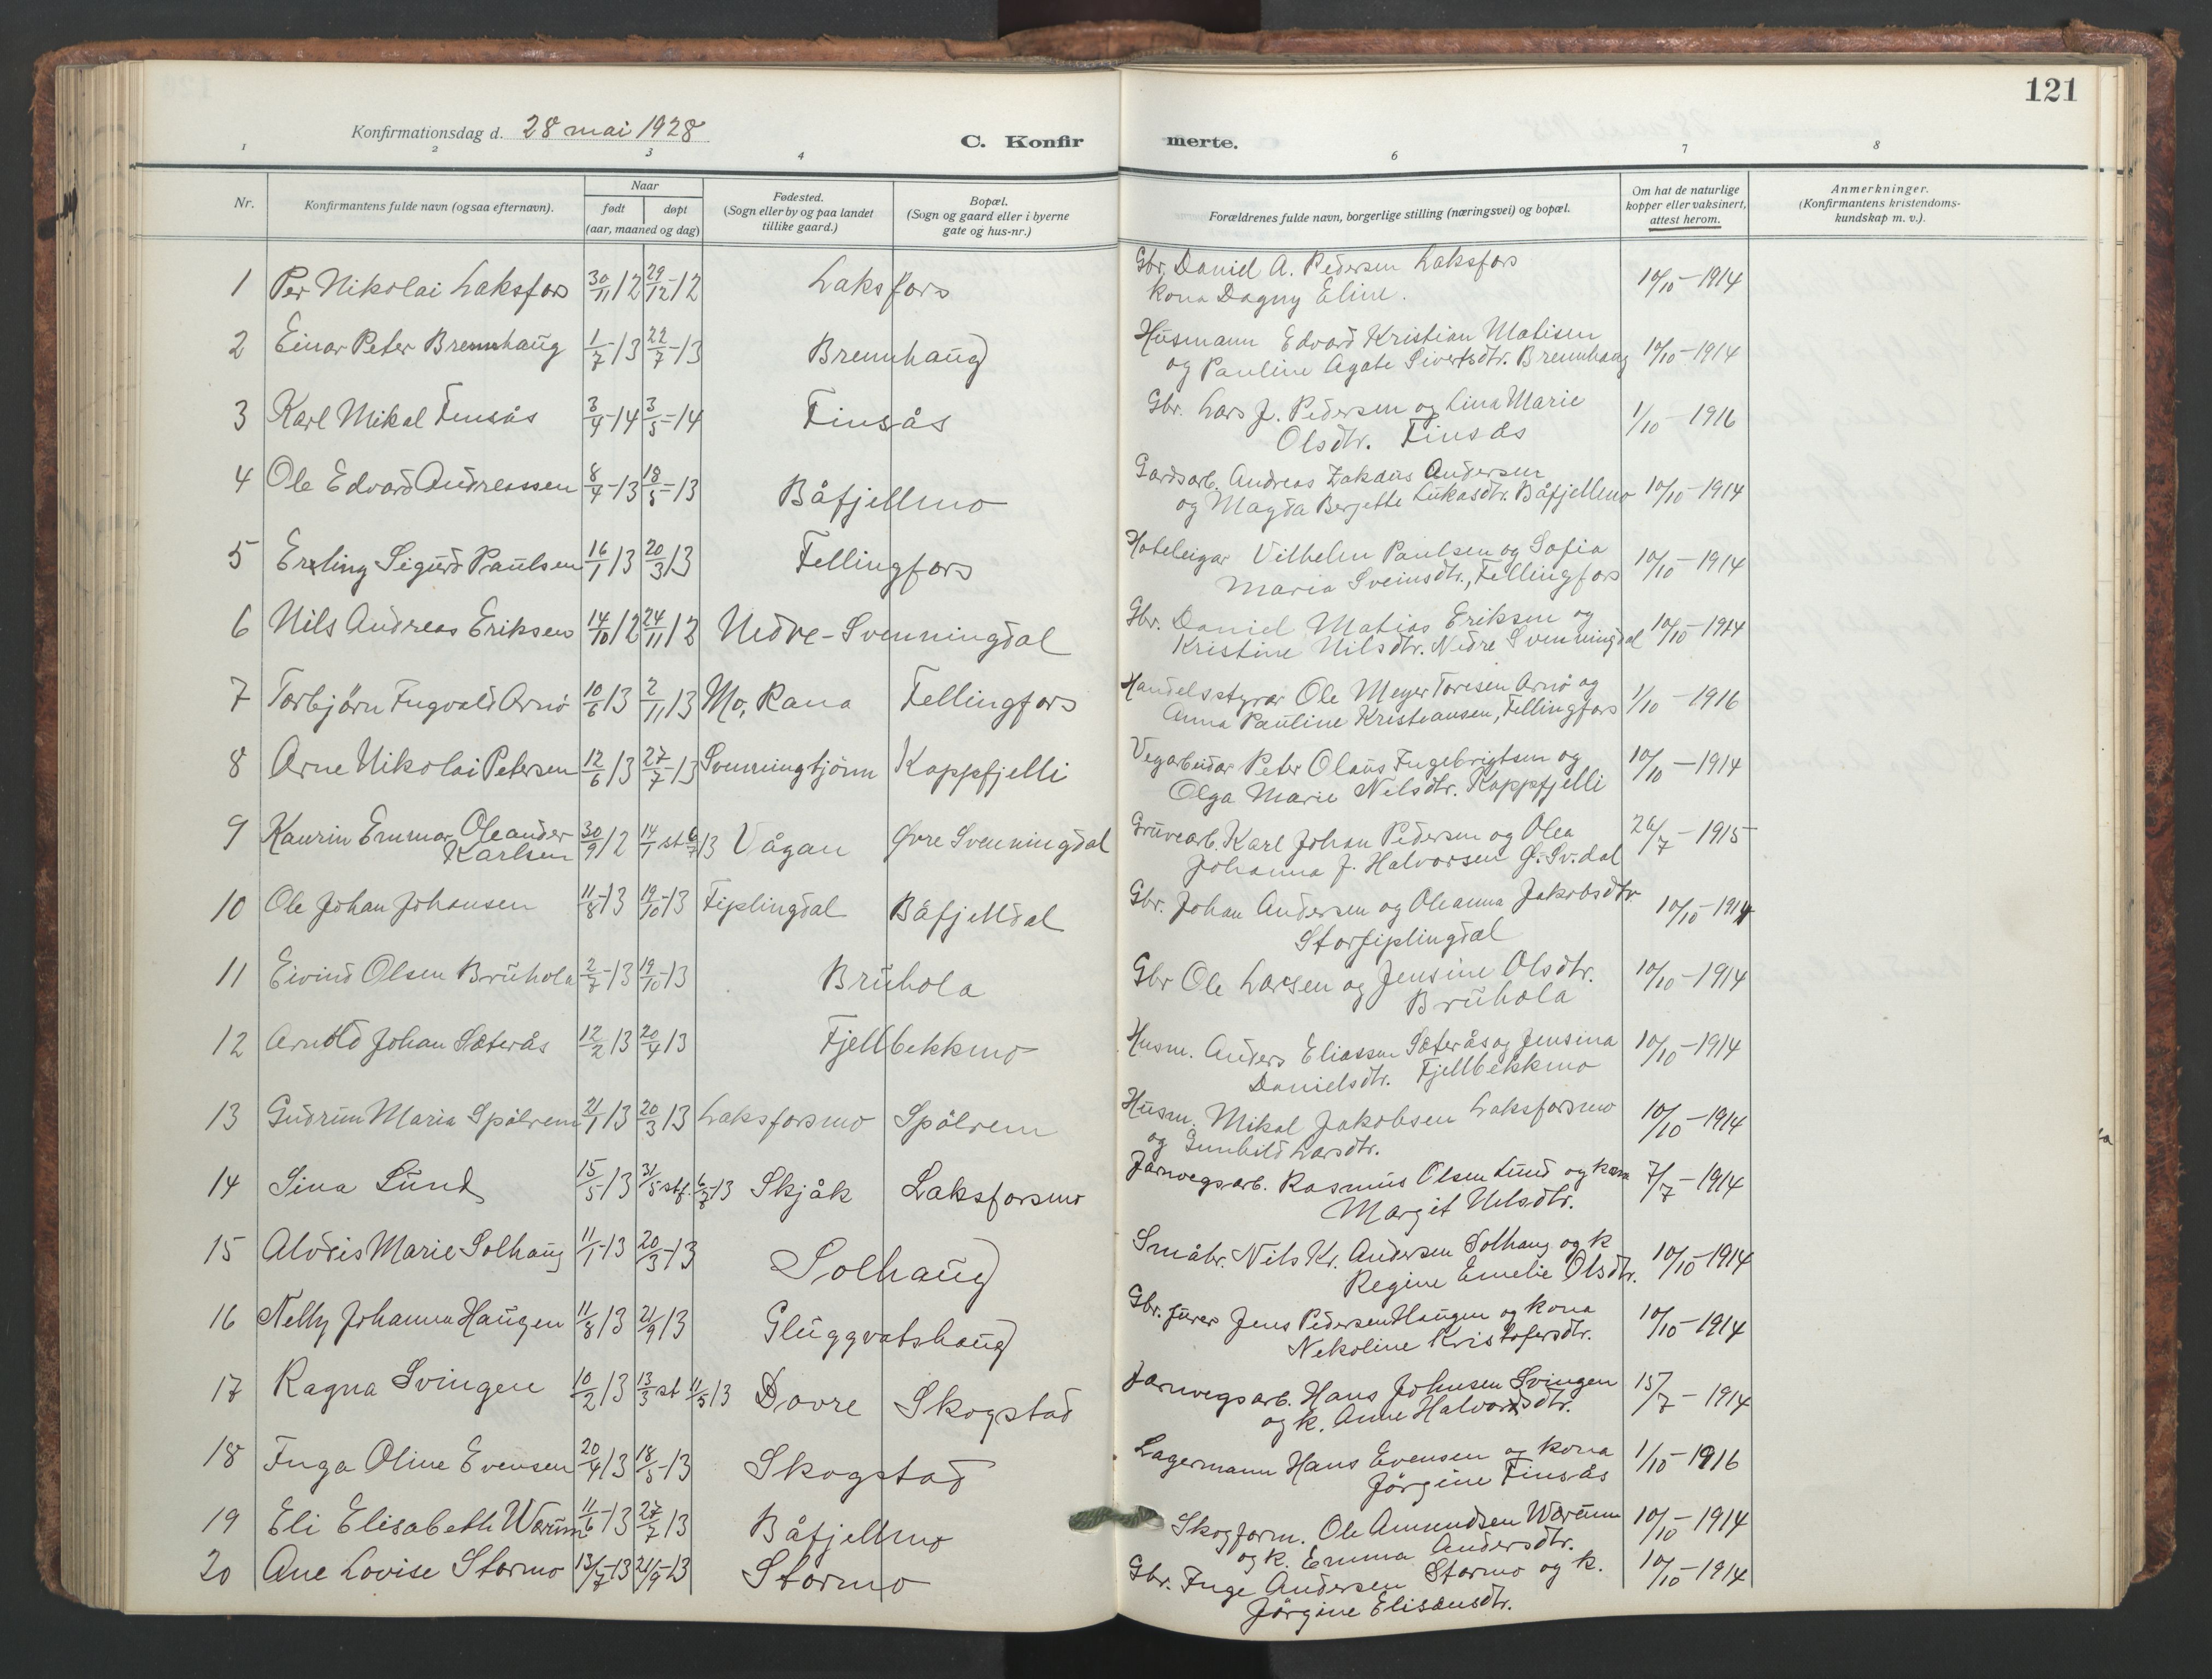 121
Konfirmationsdag d. 28 mai 1928
C. Konfirmerte.
1 2 3 4 6 7 8
Nr.
Konfirmantens fulde navn (ogsaa efternavn).
Naar
født døpt
(aar, maaned og dag)
Fødested.
(Sogn eller by og paa landet
tillike gaard.)
Bopæl.
(Sogn og gaard eller i byerne
gate og hus-nr.)
Forældrenes fulde navn, borgerlige stilling (næringsvei) og bopæl.
Om hat de naturlige
kopper eller vaksinert,
attest herom.
Anmerkninger.
(Konfirmantens kristendoms-
kundskap m. v.).
1 Per Nikolai Laksfors 30/11 12 29/12 12 Laksfors Gbr. Daniel A. Pedersen Laksfors
kona Dagny Eline. 10/10-1914
2 Einar Peter Brennhaug 1/7-13 22/7-13 Brennhaug Husmann Edvard Kristian Matisen
og Pauline Agate Sivertsdtr. Brennhaug 10/10-1914
3 Karl Mikal Finsås 3/4-14 3/5-14 Finsås Gbr. Lars J. Pedersen og Lina Marie
Olsdtr. Finsås 1/10-1916
4 Ole Edvard Andreassen 8/4-13 18/5-13 Båfjellmo Gardsarb. Andreas Zakdus Andersen
og Magda Berjette Lukasdtr. Båfjellmo 10/10-1914
5 Erling Sigurd Paulsen 16/1 13 20/3 13 Fellingfors Hoteleigar Vilhelm Paulsen og Sofia
Maria Sveinsdtr., Fellingfors 10/10-1914
6 Nils Andreas Eriksen 14/10 12 24/11 12 Nedre-Svenningdal Gbr. Daniel Matias Eriksen og
Kristine Nilsdtr. Nedre Svenningdal 10/10-1914
7 Torbjörn Ingvald Arnö 10/6 13 2/11 13 Mo, Rana Fellingfors Handelsstyrar Ole Meyer Toresen Arnö og
Anna Pauline Kristiansen, Fellingfors 1/10-1916
8 Arne Nikolai Petersen 12/6 13 27/7-13 Svenningtjönn Kappfjelli Vegarbeidar Peter Olaus Ingebrigtsen og
Olga Marie Nilsdtr. Kappfjelli 10/10-1914
9 Kaurin Emmar Oleander
Karlsen 30/9 12 14/1 st 6/7 13 Vågan Övre Svenningdal Gruvearb. Karl Johan Pedersen og Olea
Johanna J. Halvorsen Ö. Sv.dal 26/7-1915
10 Ole Johan Johansen 11/8-13 19/10-13 Fiplingdal Båfjelldal Gbr. Johan Andersen og Oleanna Jakobsdtr
Storfiplingdal 10/10-1914
11 Eivind Olsen Bruhola 2/7-13 19/10-13 Bruhola Gbr Ole Larsen og Jensine Olsdtr.
Bruhola 10/10-1914
12 Arnold Johan Sæterås 12/2 13 20/4 13 Fjellbekkmo Husm. Anders Eliassen Sæterås og Jensina
Danielsdtr. Fjellbekkmo 10/10-1914
13 Gudrun Maria Spölrem 21/1 13 20/3 13 Laksforsmo Spölrem Husm. Mikal Jakobsen Laksforsmo
og Gunhild Larsdtr. 10/10-1914
14 Sina Lund 15/5 13 31/5 stf. 6/7 13 Skjåk Laksforsmo Jarnvegsarb. Rasmus Olsen Lund og kona
Margit Nilsdtr. 7/7-1914
15 Aldis Marie Solhaug 11/1-13 20/3-13 Solhaug Småbr. Nils Kr. Andersen Solhaug og k
Regine Emelie Olsdtr. 10/10-1914
16 Nelly Johanna Haugen 11/8 13 21/9 13 Gluggvatshaug Gbr. Jens Pedersen Haugen og kona
Nekoline Kristofersdtr. 10/10-1914
17 Ragna Svingen 10/2 13 13/3 st 11/5 13 Dovre Skogstad Jarnvegsarb. Hans Johnsen Svingen
og k. Anne Halvorsdtr. 15/7-1914
18 Inga Oline Evensen 20/4 13 18/5-13 Skogstad Lagermann Hans Evensen og kona
Jörgine Finsås 1/10-1916
19 Eli Elisabeth Wærum 11/6-13 27/7 13 Båfjellmo Skogform. Ole Amundsen Wærum
og k. Emma Andersdtr. 10/10-1914
20 Ane Lovise Stormo 13/7-13 21/9-13 Stormo Gbr. Inge Andersen Stormo og k.
Jörgine Elisæusdtr. 10/10-1914